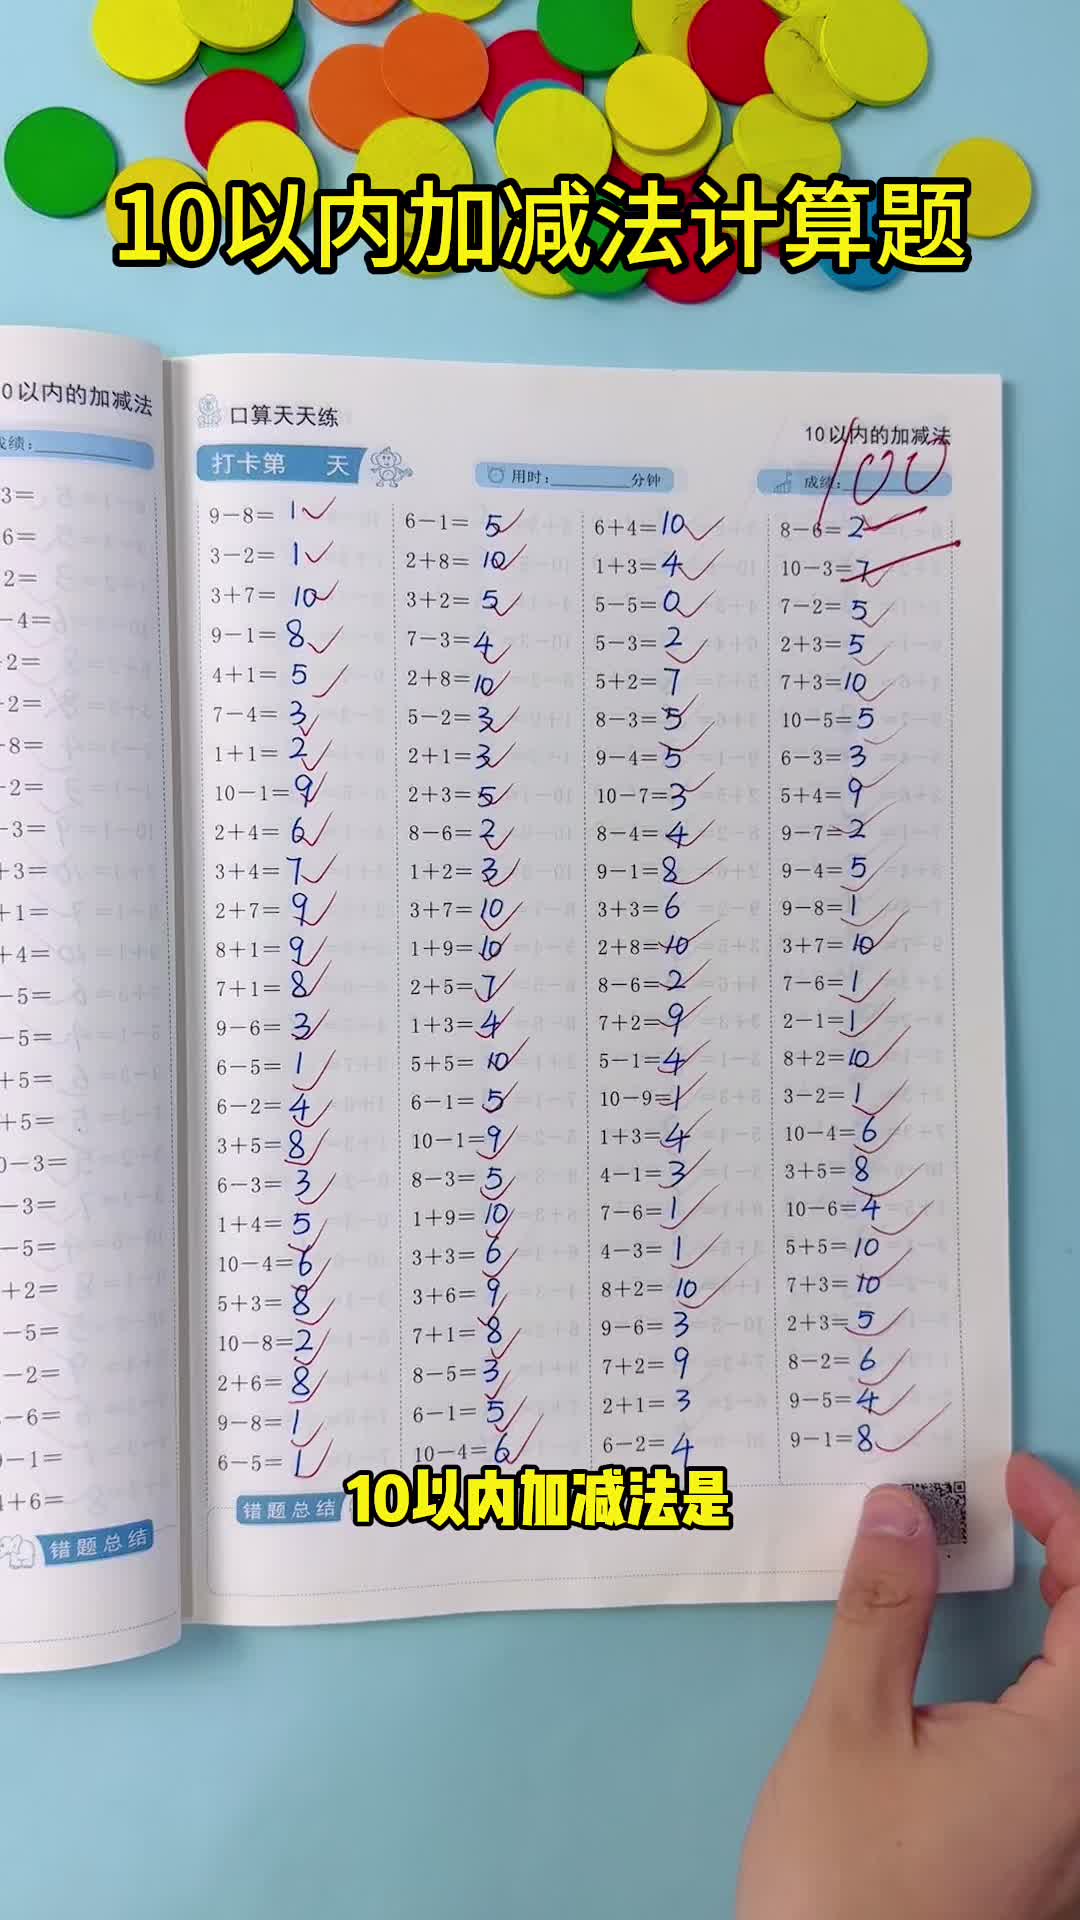 10以内加减法计算题
0以内的加减法
口算天天练
10以内的加减法
100
成绩:
打卡第 天
用时: 分钟
成绩:
9-8= 1
3-2= 1
3+7= 10
9-1= 8
4+1= 5
7-4= 3
1+1= 2
10-1= 9
2+4= 6
3+4= 7
2+7= 9
8+1= 9
7+1= 8
9-6= 3
6-5= 1
6-2= 4
3+5= 8
6-3= 3
1+4= 5
10-4= 6
5+3= 8
10-8= 2
2+6= 8
9-8= 1
6-5= 1
6-1= 5
2+8= 10
3+2= 5
7-3= 4
2+8= 10
5-2= 3
2+1= 3
2+3= 5
8-6= 2
1+2= 3
3+7= 10
1+9= 10
2+5= 7
1+3= 4
5+5= 10
6-1= 5
10-1= 9
8-3= 5
1+9= 10
3+3= 6
3+6= 9
7+1= 8
8-5= 3
6-1= 5
10-4= 6
6+4= 10
1+3= 4
5-5= 0
5-3= 2
5+2= 7
8-3= 5
9-4= 5
10-7= 3
8-4= 4
9-1= 8
3+3= 6
2+8= 10
8-6= 2
7+2= 9
5-1= 4
10-9= 1
1+3= 4
4-1= 3
7-6= 1
4-3= 1
8+2= 10
9-6= 3
7+2= 9
2+1= 3
6-2= 4
8-6= 2
10-3= 7
7-2= 5
2+3= 5
7+3= 10
10-5= 5
6-3= 3
5+4= 9
9-7= 2
9-4= 5
9-8= 1
3+7= 10
7-6= 1
2-1= 1
8+2= 10
3-2= 1
10-4= 6
3+5= 8
10-6= 4
5+5= 10
7+3= 10
2+3= 5
8-2= 6
9-5= 4
9-1= 8
错题总结
错题总结
10以内加减法是